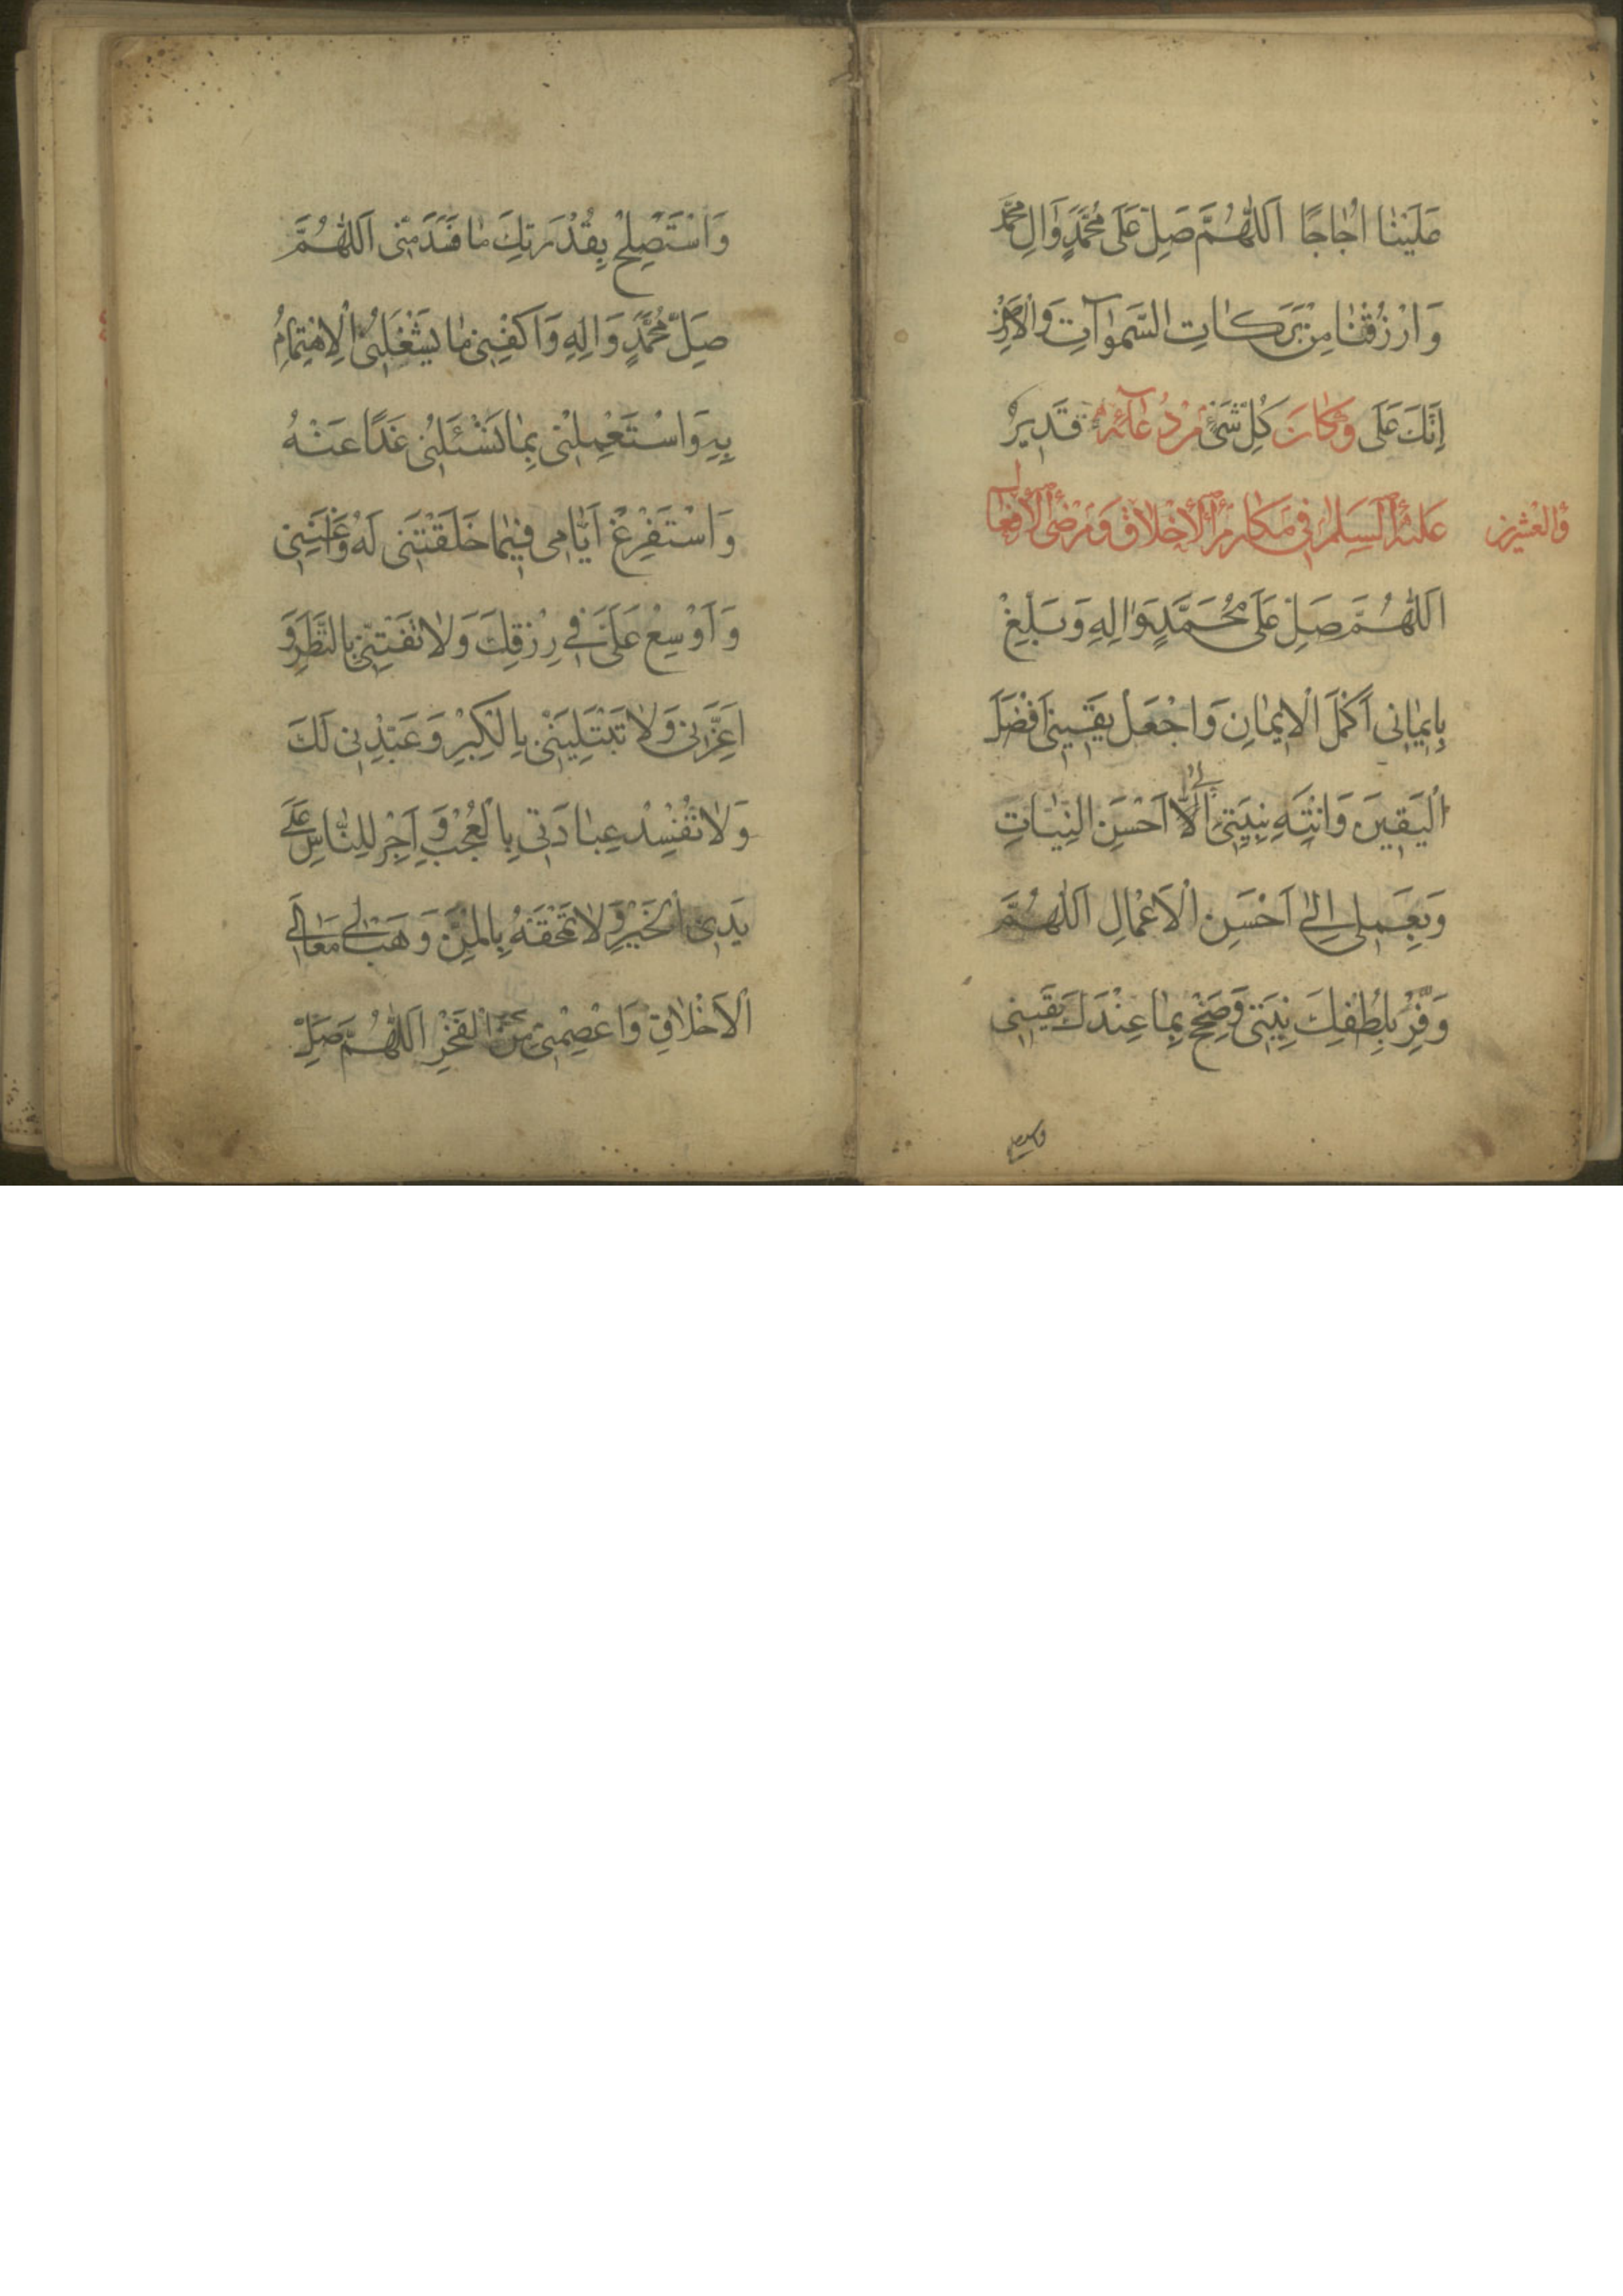 عَلَيْنَا اُجَاجًا اَللّٰهُمَّ صَلِّ عَلٰى مُحَمَّدٍ وَاٰلِ مُحَمَّد
وَارْزُقْنَا مِنْ بَرَكَاتِ السَّمٰوَاتِ وَالْاَرْضِ
اِنَّكَ عَلٰى وَكَانَ كُلِّ شَيْءٍ مِنْ دُعَائِهِ قَدِيرٌ
عَلَيْهِ السَّلَامُ فِي مَكَارِمِ الْاَخْلَاقِ وَمَرْضِيِّ الْاَفْعَالِ
وَالْعِشْرِينَ
اَللّٰهُمَّ صَلِّ عَلٰى مُحَمَّدٍ وَاٰلِهِ وَبَلِّغْ
بِاِيمَانِي اَكْمَلَ الْاِيمَانِ وَاجْعَلْ يَقِينِي اَفْضَلَ
الْيَقِينِ وَانْتَهِ بِنِيَّتِي اِلٰى اَحْسَنِ النِّيَّاتِ
وَبِعَمَلِي اِلٰى اَحْسَنِ الْاَعْمَالِ اَللّٰهُمَّ
وَفِّرْ بِلُطْفِكَ نِيَّتِي وَصَحِّحْ بِمَا عِنْدَكَ يَقِينِي
وَاسْتَصْلِحْ بِقُدْرَتِكَ مَا فَسَدَ مِنِّي اَللّٰهُمَّ
صَلِّ مُحَمَّدٍ وَاٰلِهِ وَاكْفِنِي مَا يَشْغَلُنِي الْاِهْتِمَامُ
بِهِ وَاسْتَعْمِلْنِي بِمَا تَسْئَلُنِي غَدًا عَنْهُ
وَاسْتَفْرِغْ اَيَّامِي فِيمَا خَلَقْتَنِي لَهُ وَاَغْنِنِي
وَاَوْسِعْ عَلَيَّ فِي رِزْقِكَ وَلَا تَفْتِنِّي بِالنَّظَرِ وَ
اَعِزَّنِي وَلَا تَبْتَلِيَنِّي بِالْكِبْرِ وَعَبِّدْنِي لَكَ
وَلَا تُفْسِدْ عِبَادَتِي بِالْعُجْبِ وَاَجْرِ لِلنَّاسِ عَلٰى
يَدَيَّ الْخَيْرَ وَلَا تَمْحَقْهُ بِالْمَنِّ وَهَبْ لِي مَعَالِيَ
الْاَخْلَاقِ وَاعْصِمْنِي مِنَ الْفَخْرِ اَللّٰهُمَّ صَلِّ